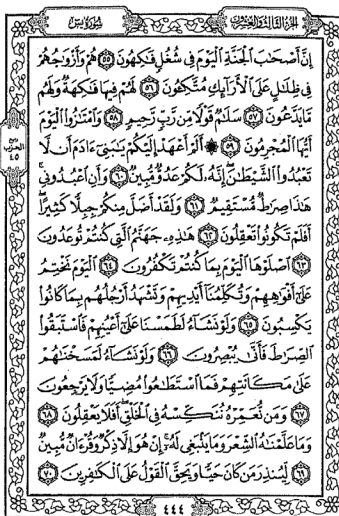 الجزء الثالث والعشرون
سورة يس
إِنَّ أَصْحَٰبَ ٱلْجَنَّةِ ٱلْيَوْمَ فِى شُغُلٍ فَٰكِهُونَ ۝٥٥ هُمْ وَأَزْوَٰجُهُمْ
فِى ظِلَٰلٍ عَلَى ٱلْأَرَآئِكِ مُتَّكِـُٔونَ ۝٥٦ لَهُمْ فِيهَا فَٰكِهَةٌ وَلَهُم
مَّا يَدَّعُونَ ۝٥٧ سَلَٰمٌ قَوْلًا مِّن رَّبٍّ رَّحِيمٍ ۝٥٨ وَٱمْتَٰزُوا۟ ٱلْيَوْمَ
أَيُّهَا ٱلْمُجْرِمُونَ ۝٥٩ ۞ أَلَمْ أَعْهَدْ إِلَيْكُمْ يَٰبَنِىٓ ءَادَمَ أَن لَّا
تَعْبُدُوا۟ ٱلشَّيْطَٰنَ إِنَّهُۥ لَكُمْ عَدُوٌّ مُّبِينٌ ۝٦٠ وَأَنِ ٱعْبُدُونِى
هَٰذَا صِرَٰطٌ مُّسْتَقِيمٌ ۝٦١ وَلَقَدْ أَضَلَّ مِنكُمْ جِبِلًّا كَثِيرًا
أَفَلَمْ تَكُونُوا۟ تَعْقِلُونَ ۝٦٢ هَٰذِهِۦ جَهَنَّمُ ٱلَّتِى كُنتُمْ تُوعَدُونَ
۝٦٣ ٱصْلَوْهَا ٱلْيَوْمَ بِمَا كُنتُمْ تَكْفُرُونَ ۝٦٤ ٱلْيَوْمَ نَخْتِمُ
عَلَىٰٓ أَفْوَٰهِهِمْ وَتُكَلِّمُنَآ أَيْدِيهِمْ وَتَشْهَدُ أَرْجُلُهُم بِمَا كَانُوا۟
يَكْسِبُونَ ۝٦٥ وَلَوْ نَشَآءُ لَطَمَسْنَا عَلَىٰٓ أَعْيُنِهِمْ فَٱسْتَبَقُوا۟
ٱلصِّرَٰطَ فَأَنَّىٰ يُبْصِرُونَ ۝٦٦ وَلَوْ نَشَآءُ لَمَسَخْنَٰهُمْ
عَلَىٰ مَكَانَتِهِمْ فَمَا ٱسْتَطَٰعُوا۟ مُضِيًّا وَلَا يَرْجِعُونَ
۝٦٧ وَمَن نُّعَمِّرْهُ نُنَكِّسْهُ فِى ٱلْخَلْقِ أَفَلَا يَعْقِلُونَ ۝٦٨
وَمَا عَلَّمْنَٰهُ ٱلشِّعْرَ وَمَا يَنۢبَغِى لَهُۥٓ إِنْ هُوَ إِلَّا ذِكْرٌ وَقُرْءَانٌ مُّبِينٌ
۝٦٩ لِّيُنذِرَ مَن كَانَ حَيًّا وَيَحِقَّ ٱلْقَوْلُ عَلَى ٱلْكَٰفِرِينَ ۝٧٠
الحزب
٤٥
٤٤٤